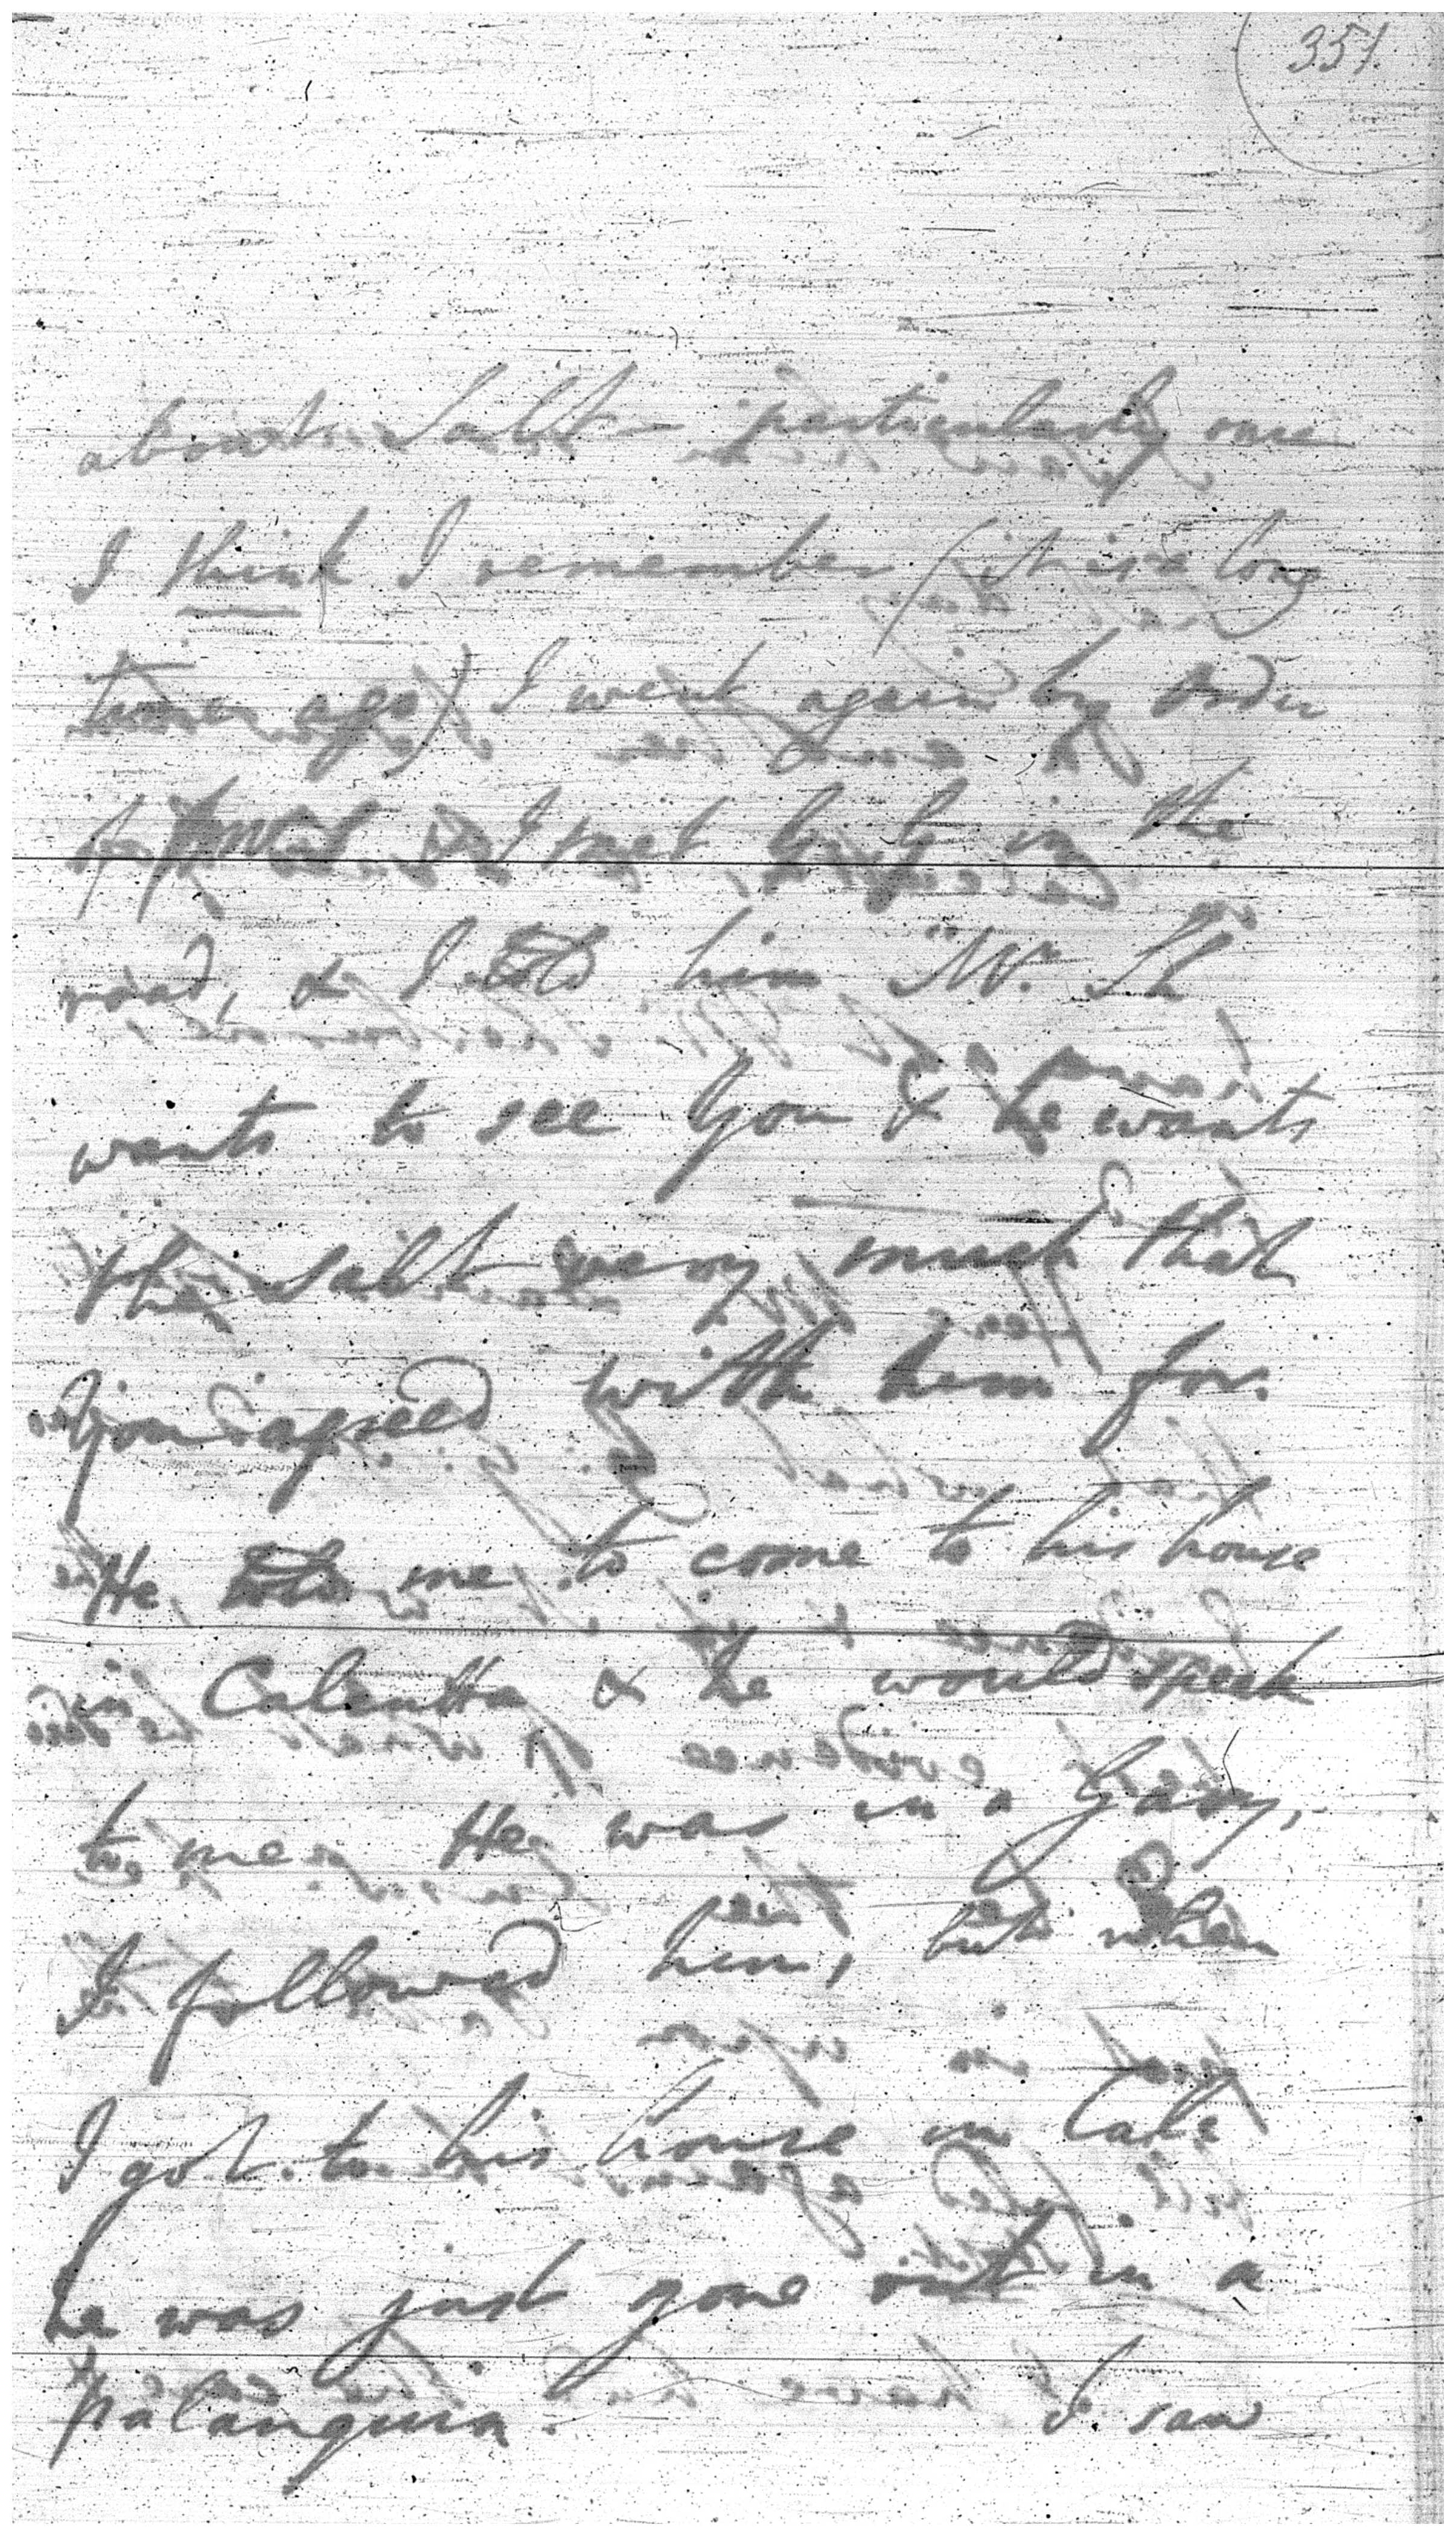 351.
about Salt — particularly once
I think I remember (it is a long
time ago) I went again by order
of & I met in the
road, & I told him "Mr. Sh
wants to see you & he wants
the Salt very much that
you agreed with him for.
He told me to come to his house
in Calcutta & he would speak
to me. He was in a Gary,
I followed him, but when
I got to his house in Cale
he was just gone out in a
palanquin. I saw